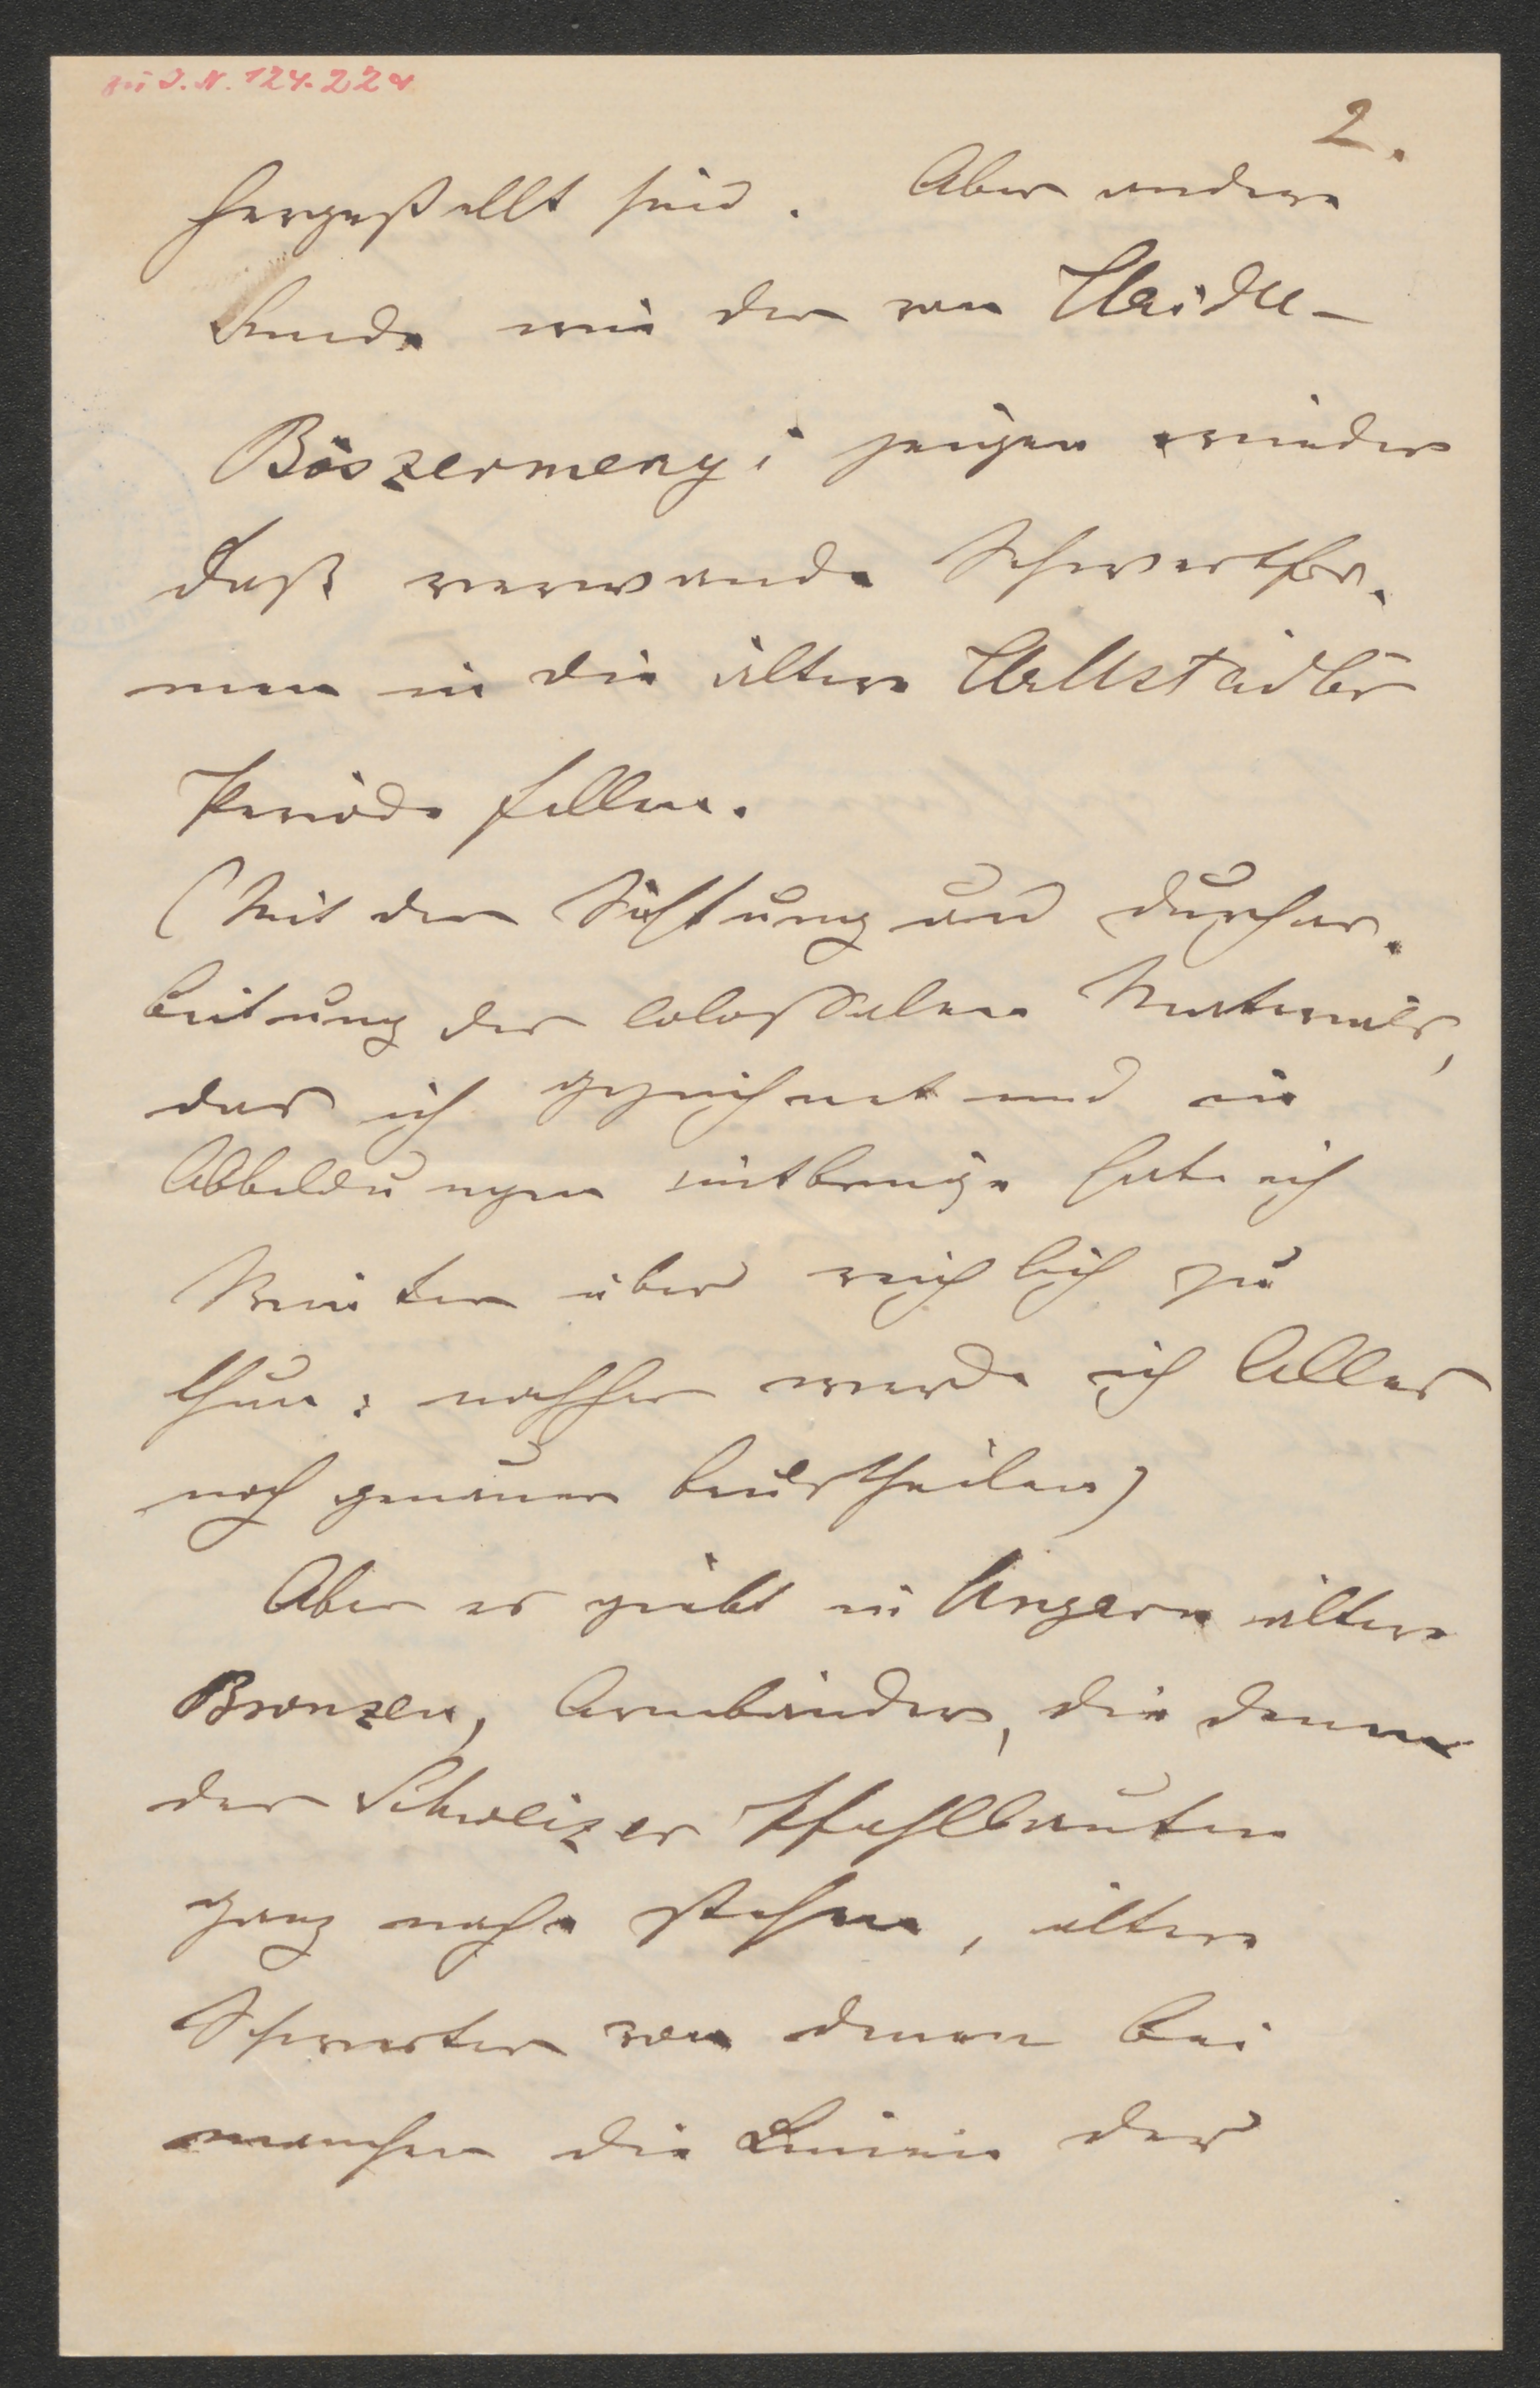 zu I.N. 124.224
2.
hergestellt sind. Aber andere
Funde wie der von Haidu-
Böszermenyi zeigen wieder
daß verwande Schwertfor-
men in die ältere Hallstädter
Periode fallen.
(Mit der Sichtung und Durchar-
beitung des colossalen Materials,
das ich gezeichnet und in
Abbildungen mitbringe habe ich
Winter über reichlich zu
thun; nachher werde ich Alles
noch genauer beurtheilen)
Aber es giebt in Ungarn ältere
Bronzen, Armbänder, die denen
der Schweizer Pfahlbauten
ganz nahe stehen, ältere
Schwerter von denen bei
manchen die Linie der